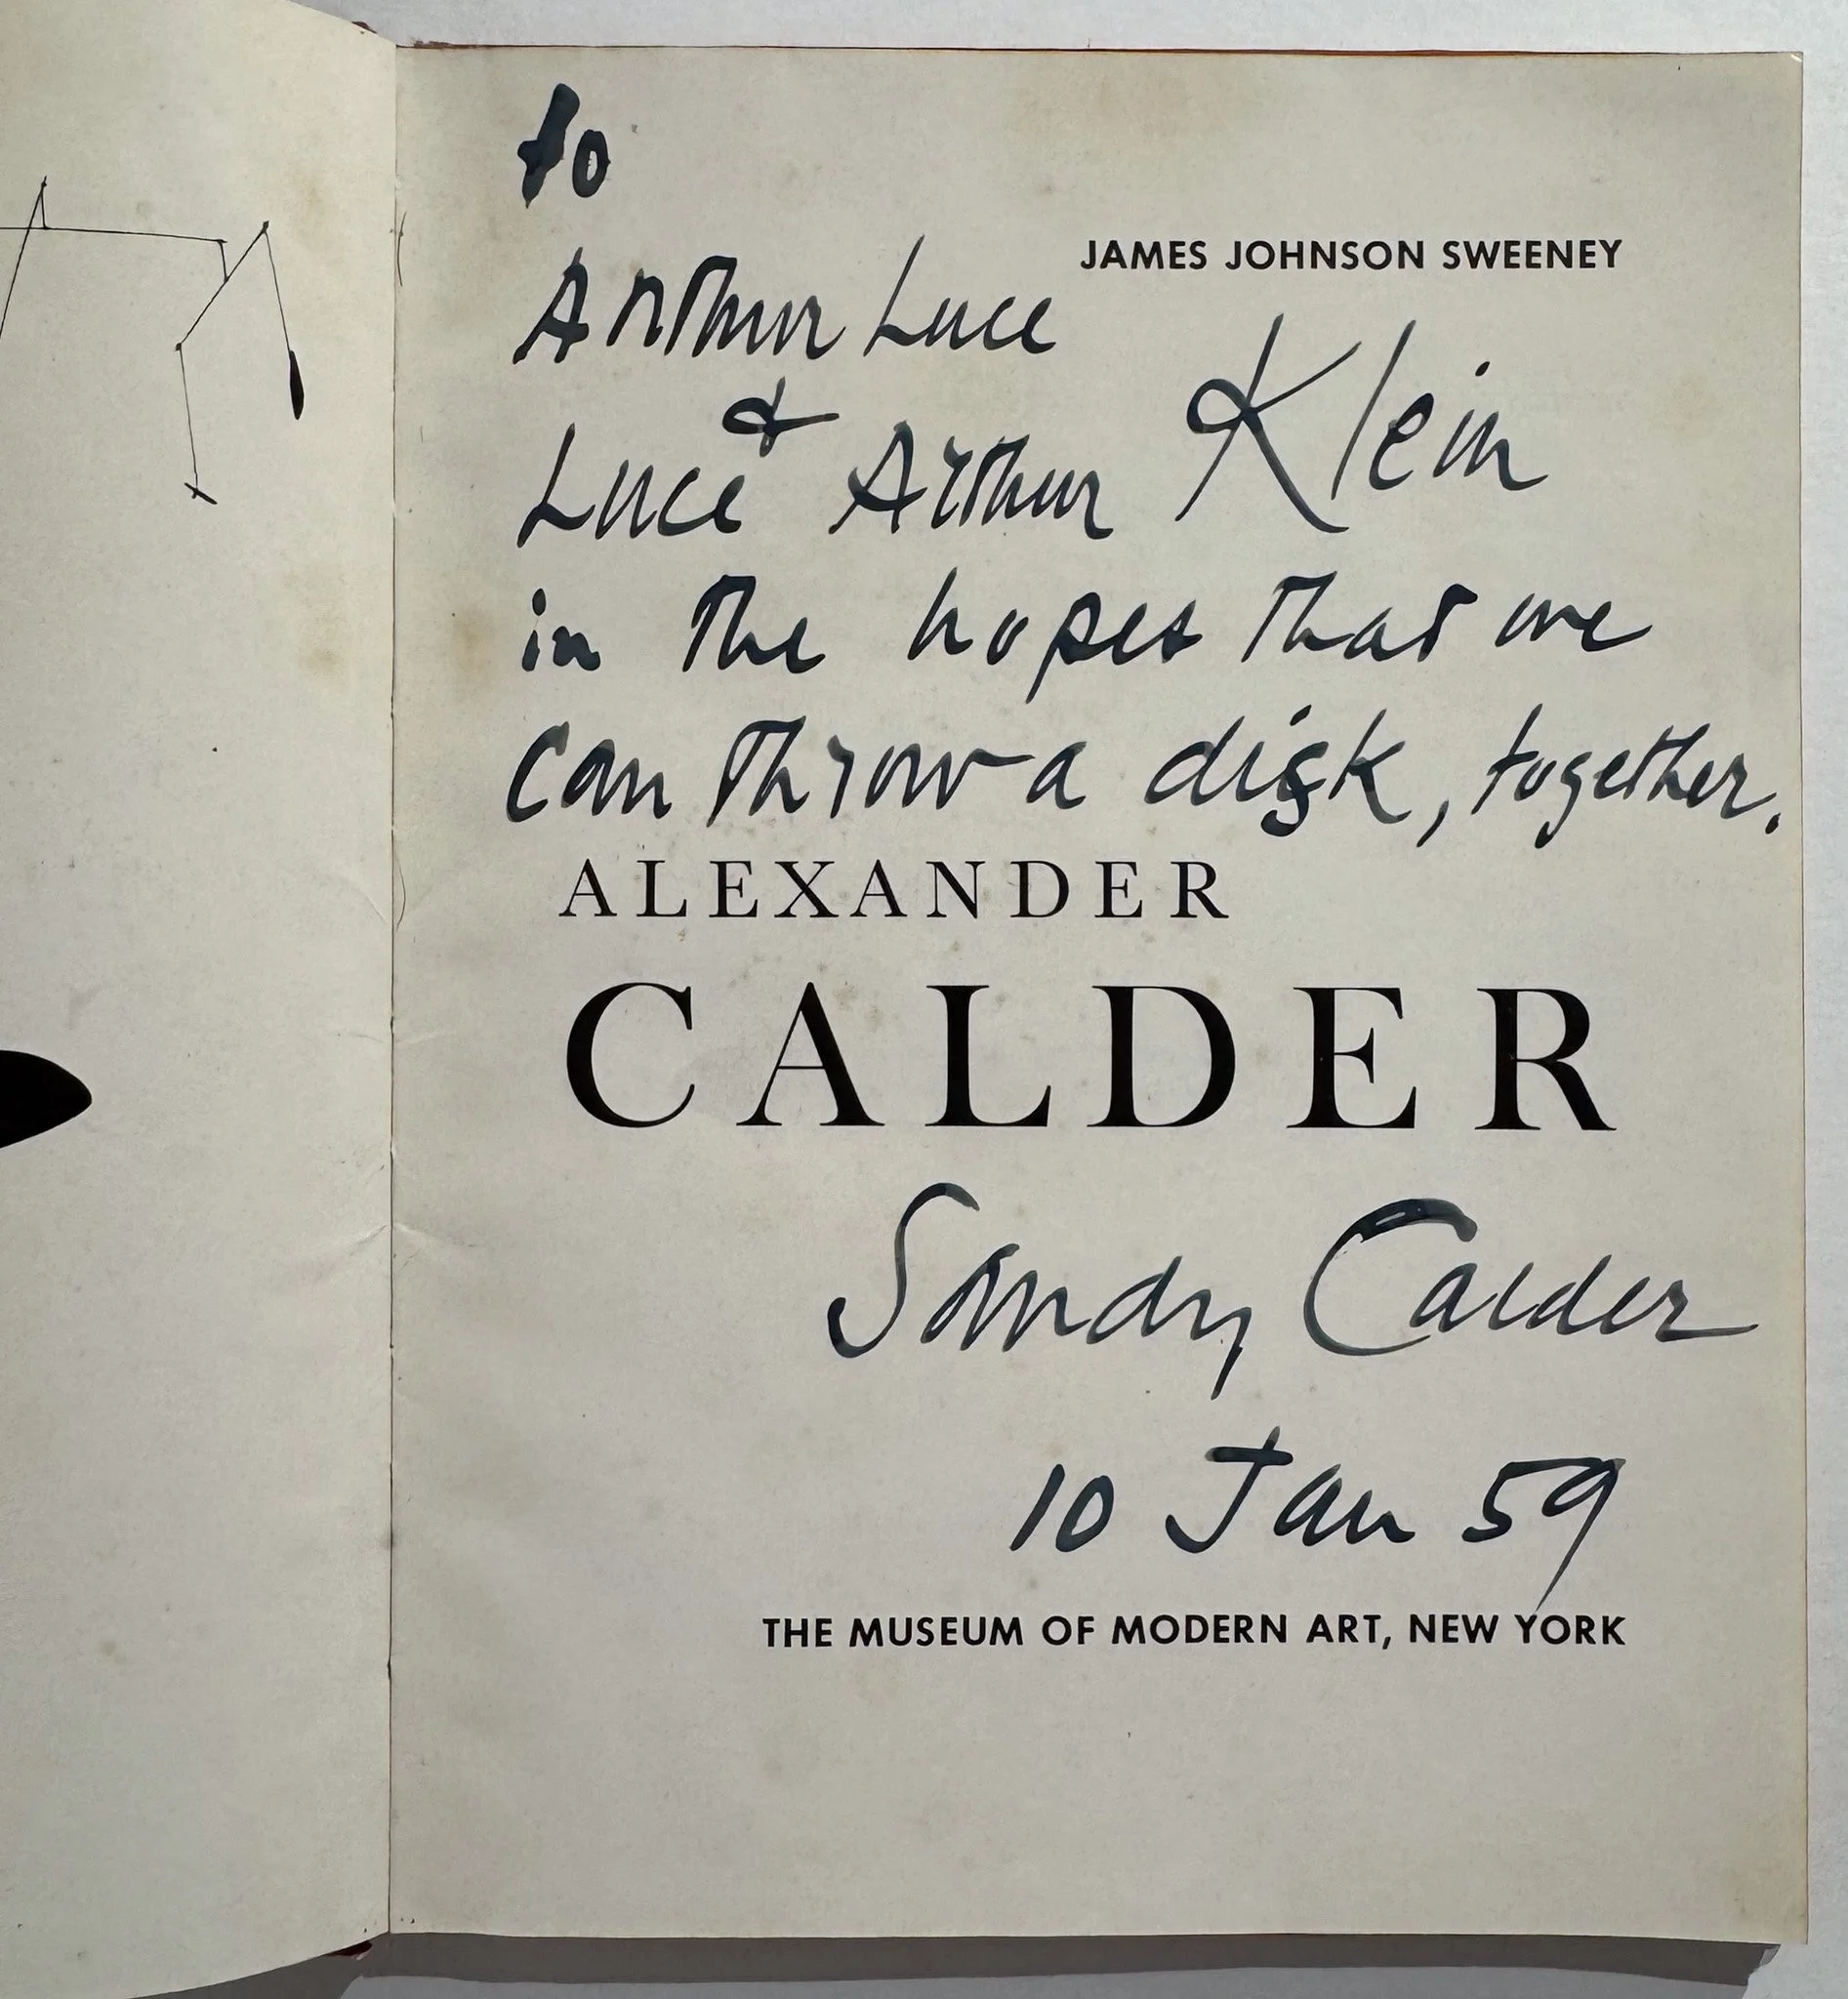 to
JAMES JOHNSON SWEENEY
Arthur Luce
&
Luce Arthur Klein
in the hopes that we
can throw a disk, together.
ALEXANDER
CALDER
Sandy Calder
10 Jan 59
THE MUSEUM OF MODERN ART, NEW YORK